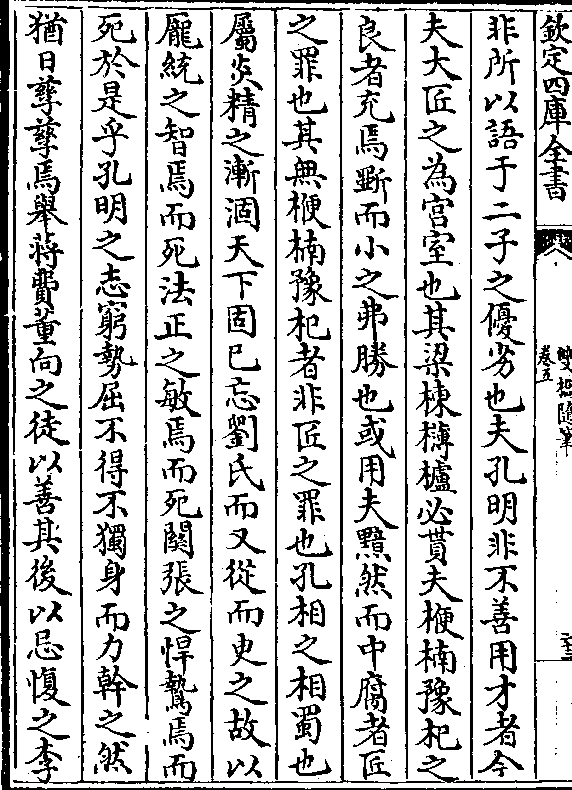 欽定四庫全書
雙橋隨筆
卷五
非所以語于二子之優劣也夫孔明非不善用才者今
夫大匠之為宫室也其梁棟欂櫨必貰夫楩楠豫杞之
良者充焉斲而小之弗勝也或用夫黯然而中腐者匠
之罪也其無楩楠豫杞者非匠之罪也孔相之相蜀也
屬炎精之漸涸天下固已忘劉氏而又從而吏之故以
龎統之智焉而死法正之敏焉而死關張之悍鷙焉而
死於是乎孔明之志窮勢屈不得不獨身而力幹之然
猶日孳孳焉舉蔣費董向之徒以善其後以忌愎之李